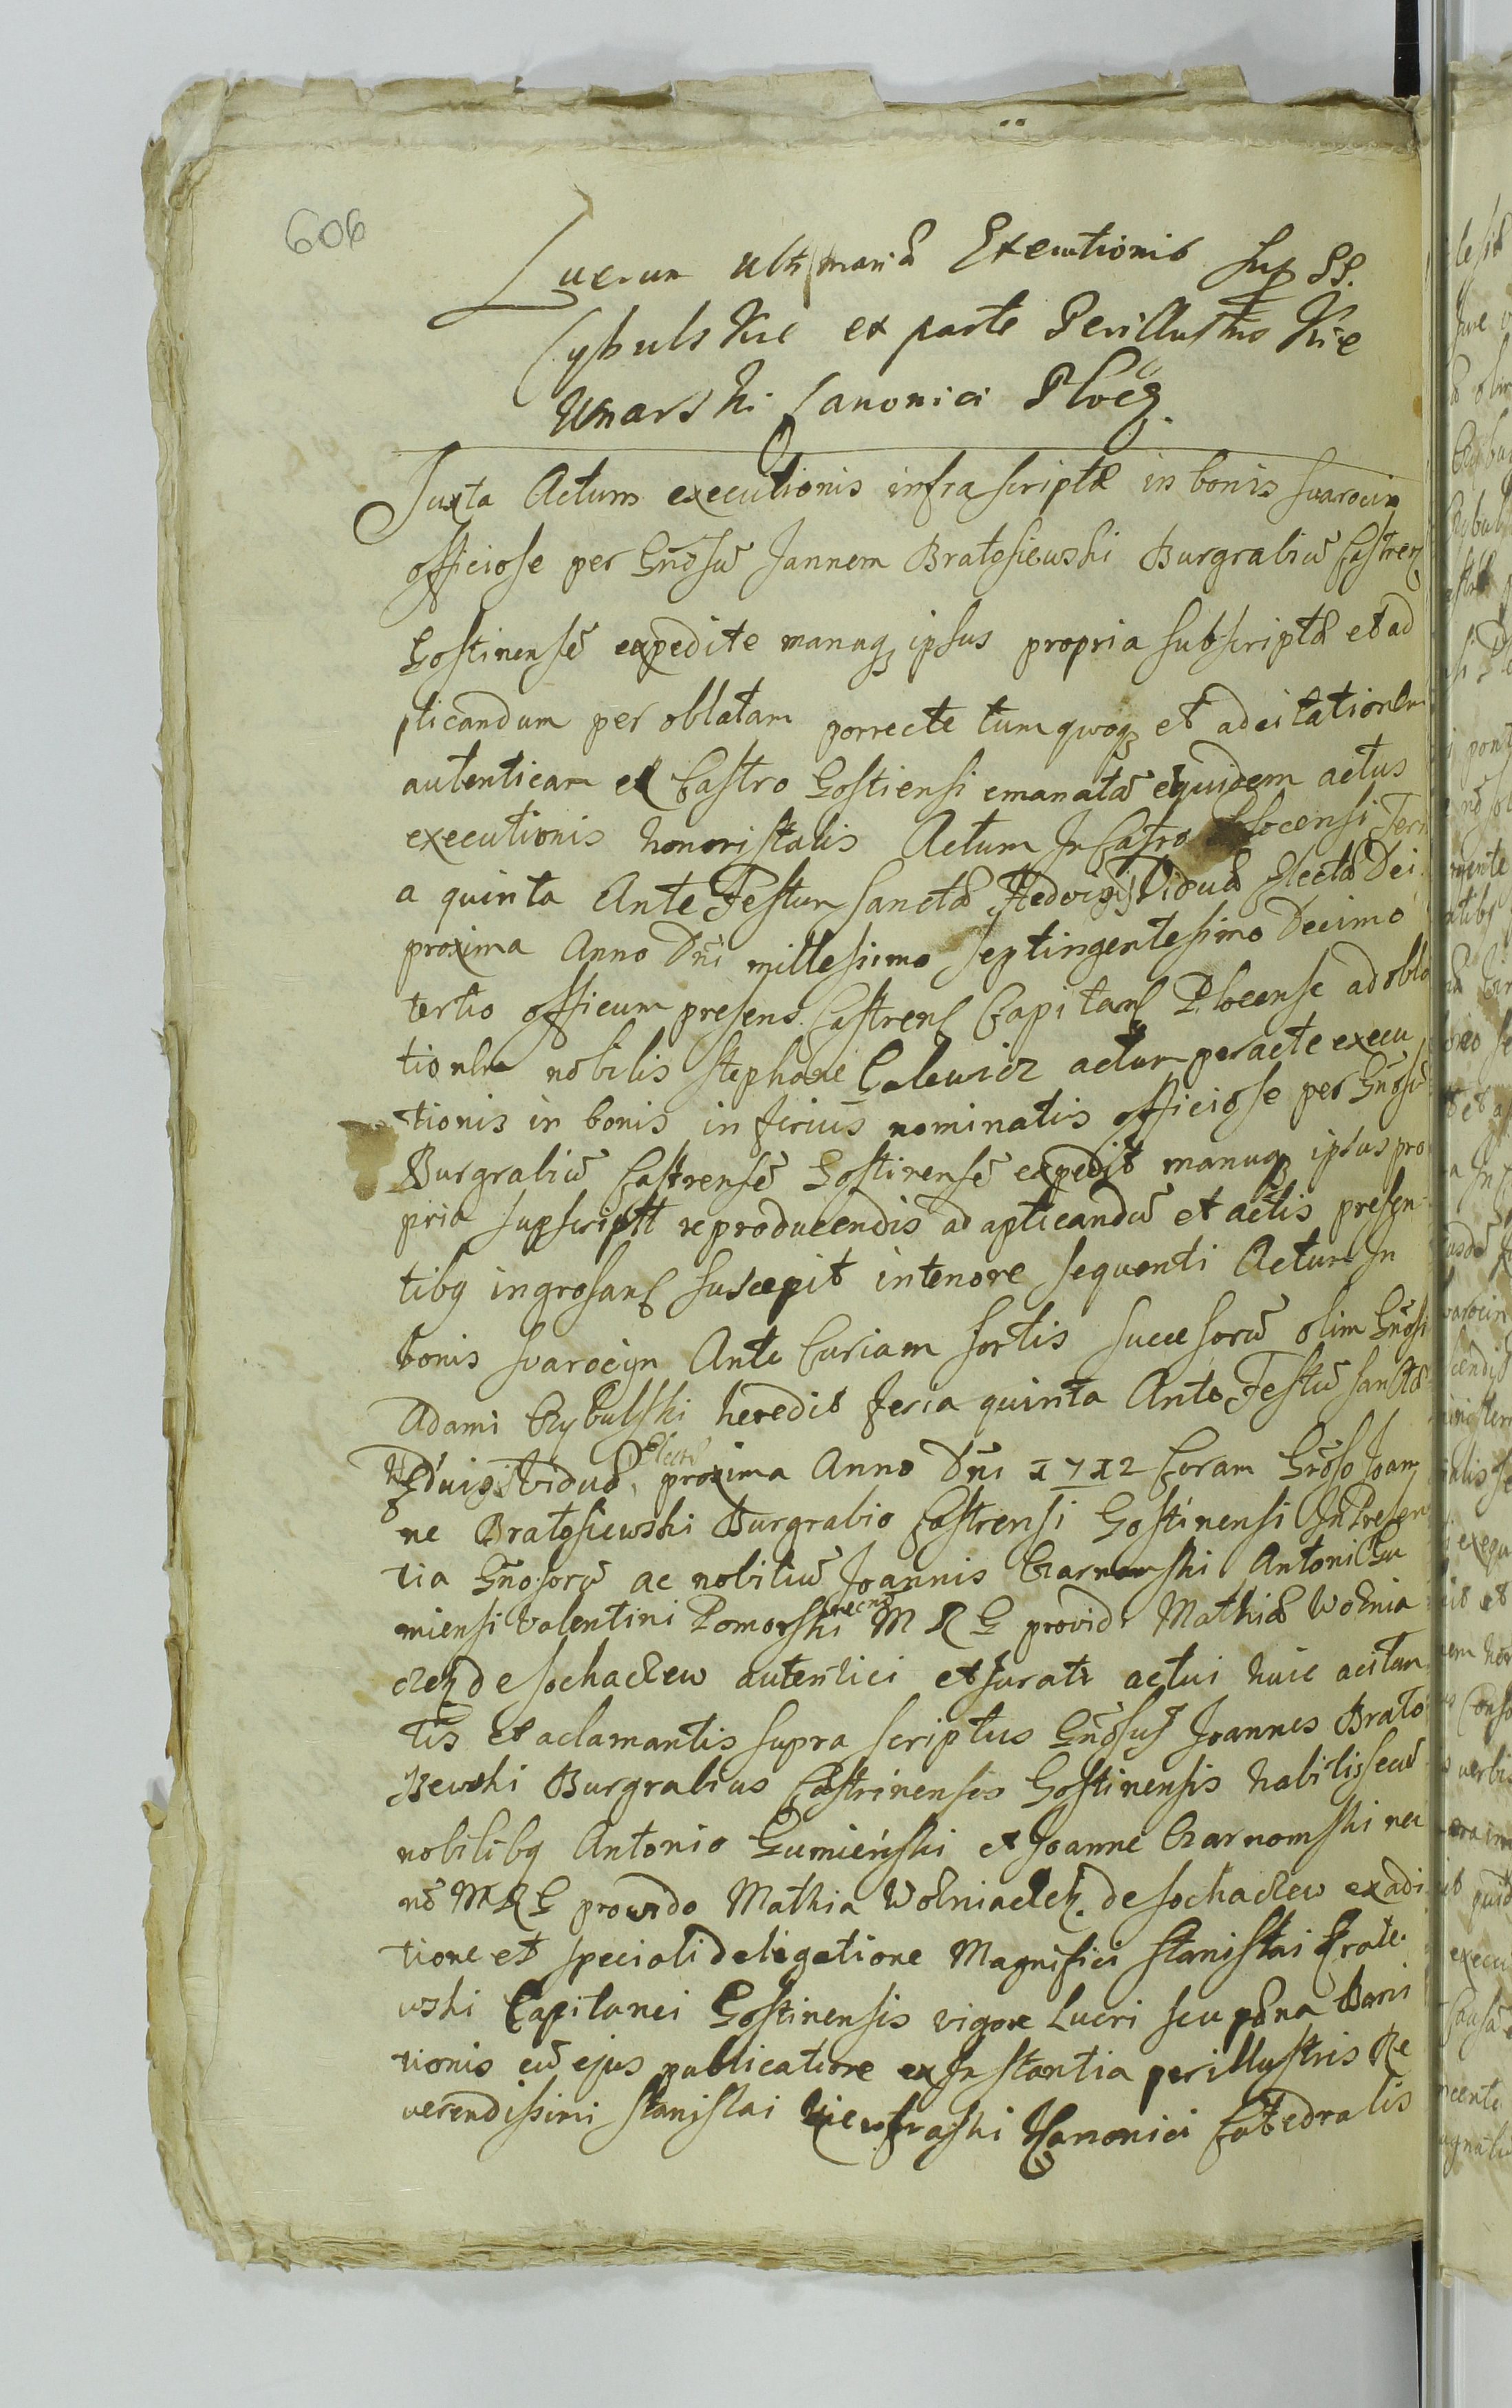 606
Lucrum ultimariæ Executionis sup SS.
Cybulskie ex parte Perillustris Kie
Unarski Canonici Ploc̃g
Juxta Actum executionis infrascriptæ in bonis suarocin
officiose per Gñosũ Jannem Bratosiewski Burgrabiũ Castreñ
Gostinensẽ expedite manuq; ipsus propria subscriptæ et ad
plicandum per oblatam porrecte tum quoq; et ad citationem
autenticam ex Castro Gostiensi emanatã equidem actus
executionis honoristalis Actum In Castro Plocensi Feri
a quinta Ante Festum Sanctæ Hedvigis Viduæ Electæ Dei
proxima Anno Dñi millesiimo septingentesimo Decimo
tertio officum presens Castreñ Capitañ Plocense ad obla
tionem nobilis Stephani Galewicz actum peracte execu
tionis in bonis inferius nominatis officiose per Gñosũ
Burgrabiũ Castrensẽ Gostinensẽ expedit manuq; ipsus pro
pria supscriptt reproducendis ad apticandũ et actis presen
tibq ingrosañ suscepit in tenore sequenti Actum In
bonis Suarocyn Ante Curiam sortis succesorũ olim Gñosi
Adami Cybulski heredis feria quinta Ante Festũ Sanctæ
Hedvigis Viduæ Electæ proxima Anno Dñi 1712 Coram Gñoso Joan
ne Bratosiewski Burgrabio Castrensi Gostinensi In Presen
tia Gñosorũ ac nobiliũ Joannis Czarnomski Antoni Gu
miensi Valentini Pomorski necnõ M R G providi Mathiæ Wozniа
czek de Sochaczew autentici et jurati actui huic acitan
tis et aclamantis supra scriptus Gñosus Joannes Brato
siewski Burgrabius Castrinensis Gostinensis habitis secũ
nobilibq Antonio Gumieński et Joanne Czarnomski nec
nõ M R G prowido Mathia Wozniaczek de Sochaczew ex adi
tione et speciali deligatione Magnifici Stanislai Crale
wski Capitanei Gostinensis vigore Lucri seu pæna Bani
tionis cũ ejus publicatione ex Instantia perillustris Re
verendissimi Stanislai Canonici Catedralis